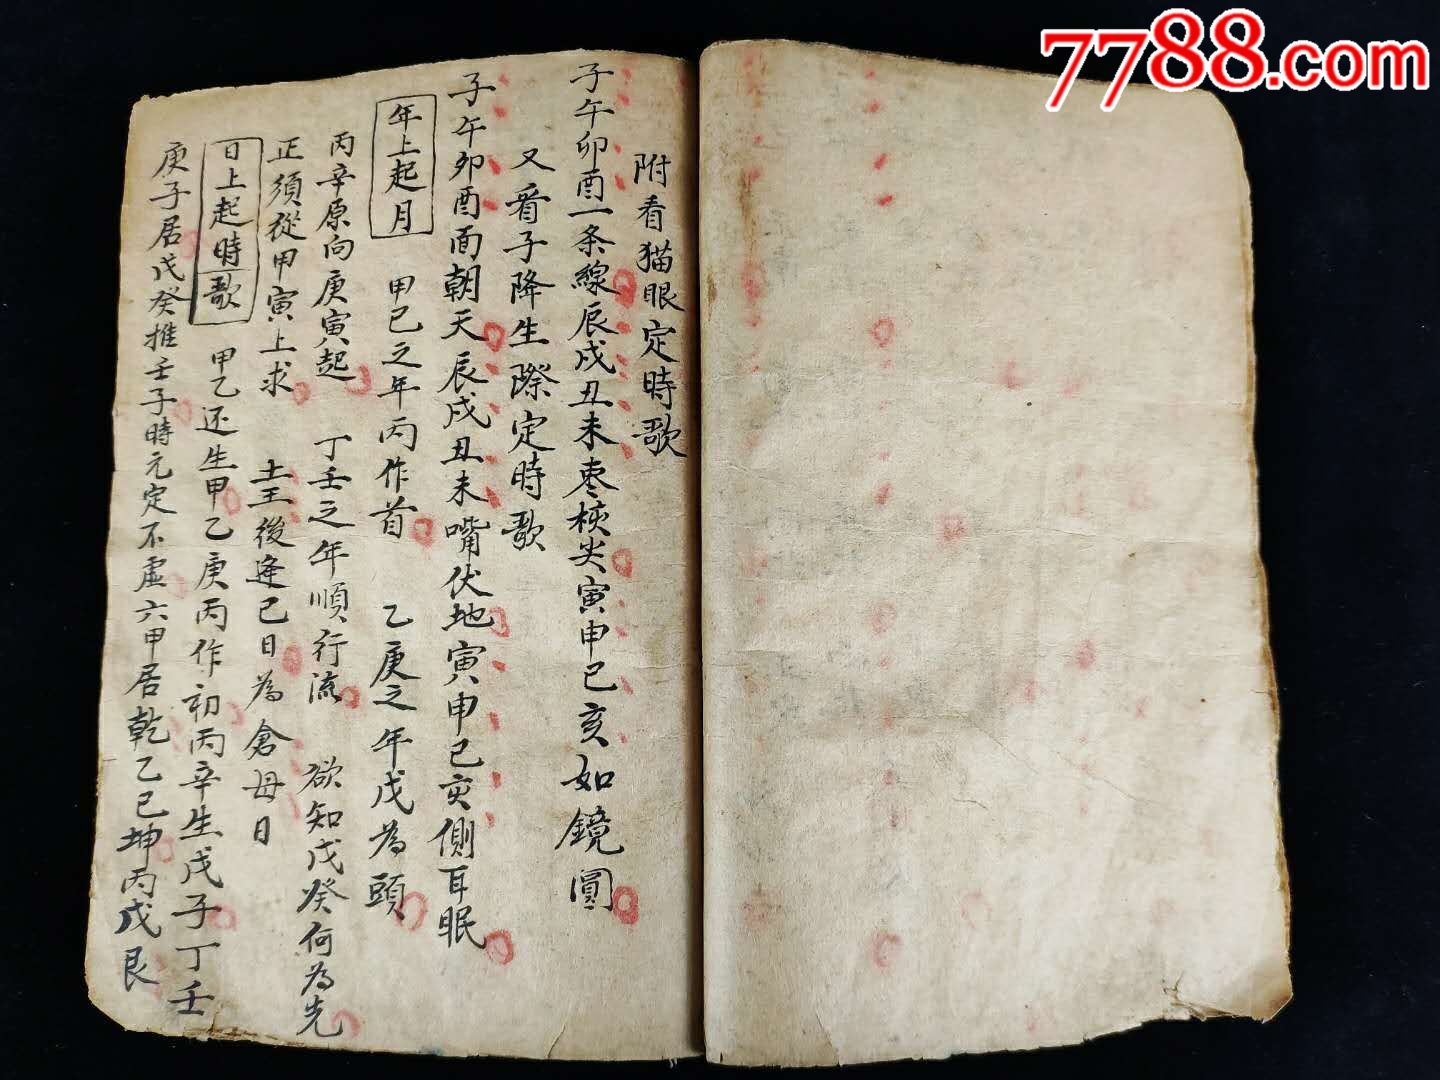 7788.com
附看猫眼定時歌
子午卯酉一条線辰戌丑未枣核尖寅申巳亥如鏡圓
又看子降生際定時歌
子午卯酉面朝天辰戌丑未嘴伏地寅申巳亥側耳眠
年上起月 甲己之年丙作首 乙庚之年戊為頭
丙辛原向庚寅起 丁壬之年順行流 欲知戊癸何為先
正須從甲寅上求 土王後逢己日為倉母日
日上起時歌 甲乙还生甲乙庚丙作初丙辛生戊子丁壬
庚子居戊癸推壬子時元定不虛六甲居乾乙巳坤丙戊艮